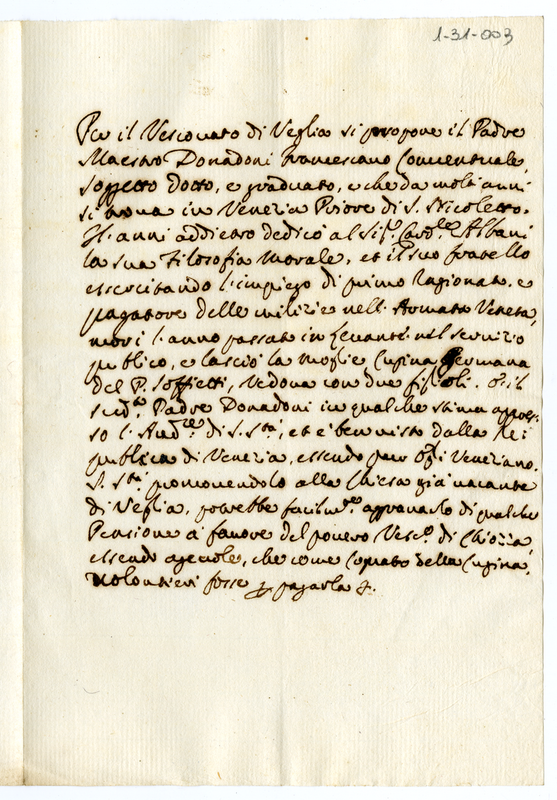 1-31-003
Per il Vescovato di Veglia si propone il Padre
Maestro Donadoni Francescano Conventuale,
soggetto dotto, e graduato, e che da molti anni
si trova in Venezia Priore di S. Nicoletto.
Gl'anni addietro dedicò al Sig.r Card.le Albani
la sua Filosofia Morale, et il suo fratello
essercitando l'impiego di primo Ragionato, e
pagatore delle milizie nell'Armata Veneta,
morì l'anno passato in Levante nel servizio
publico, e lasciò la moglie Cugina Germana
del P. Soffietti, Vedova con due figlioli. è il
sud.to Padre Donadoni in qualche stima appres-
so l'Aud.re di S. S.tà, et è ben visto dalla Re-
publica di Venezia, essendo pure Veneziano.
S. S.tà promovendolo alla Chiesa già vacante
di Veglia, potrebbe facilm.te aggravarlo di qualche
Pensione a favore del povero Vesc.o di Chiozza,
essendo agevole, che come Cognato della Cugina,
volontieri fosse p pagarla